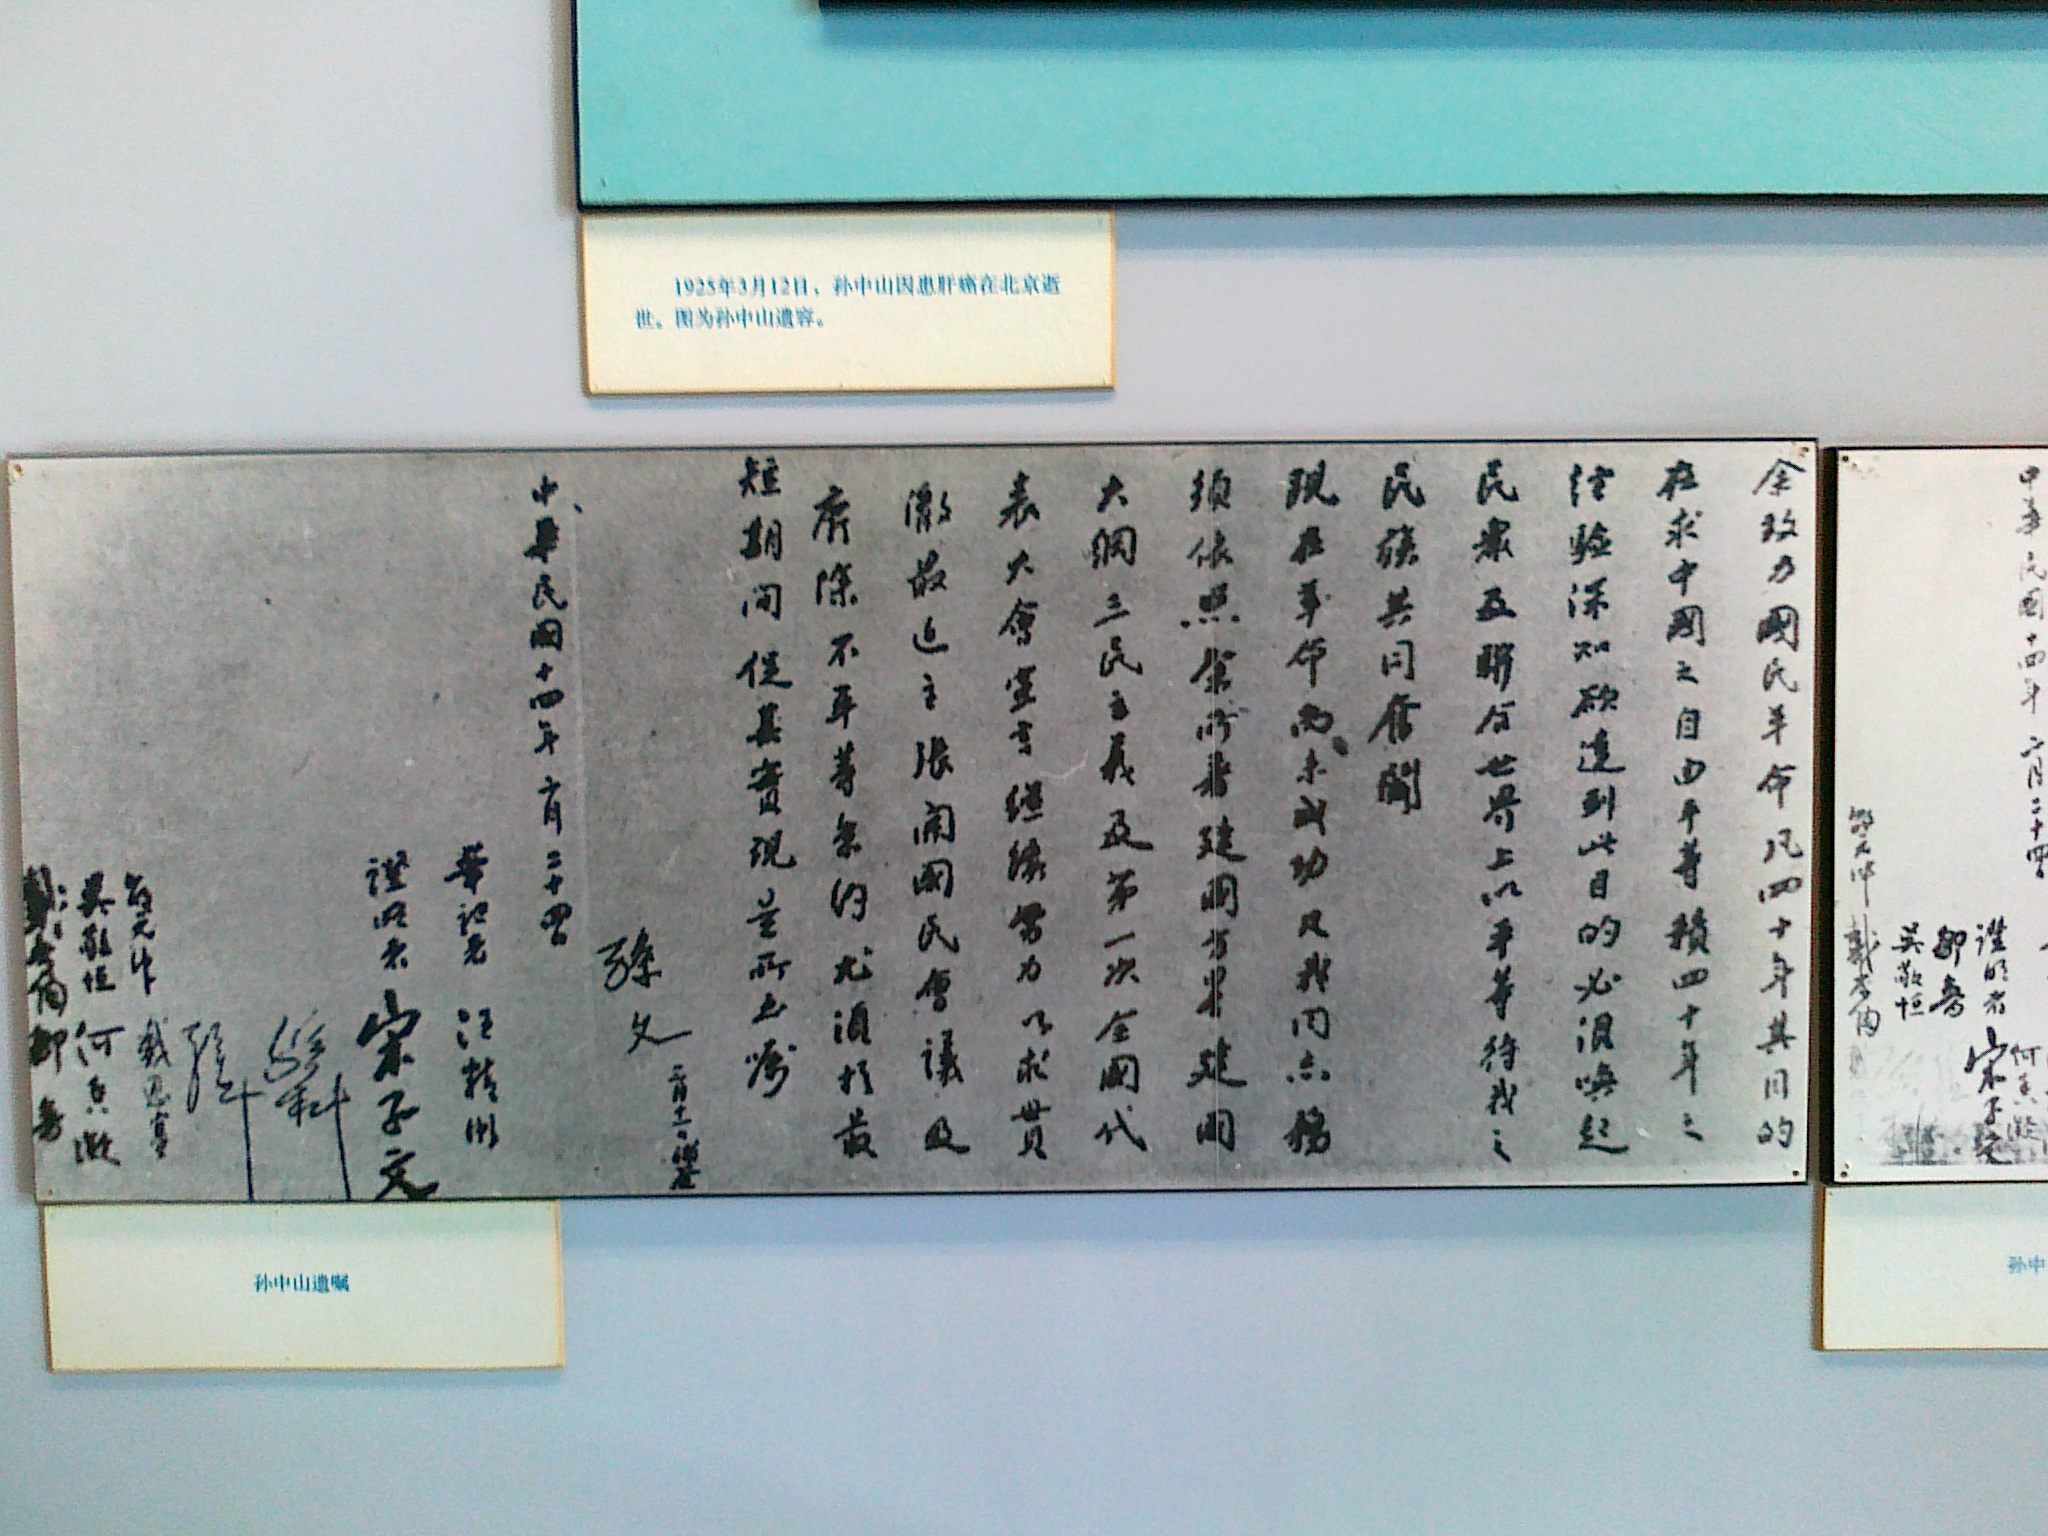 1925年3月12日，孙中山因患肝癌在北京逝
世。图为孙中山遗容。
余致力國民革命凡四十年其目的
在求中國之自由平等積四十年之
经驗深知欲達到此目的必須喚起
民衆及聯合世界上以平等待我之
民族共同奮鬪
現在革命尚未成功凡我同志務
須依照余所著建國方畧建國
大綱三民主義及第一次全國代
表大會宣言继續努力以求貫
澈最近主張開國民會議及
廃除不平等条约尤須於最
短期间促其實現是所至嘱
孫文 三月十一日補簽
中華民國十四年二月二十四日
筆記者 汪精衛
證明者 宋子文
孫科
孔
戴恩賽
吳敬恒 何香凝
戴季陶 鄒魯
孙中山遗嘱
中華民國十四年 二月二十四日
證明者 宋子文
何香凝
鄒魯
吳敬恒
戴季陶
孙中